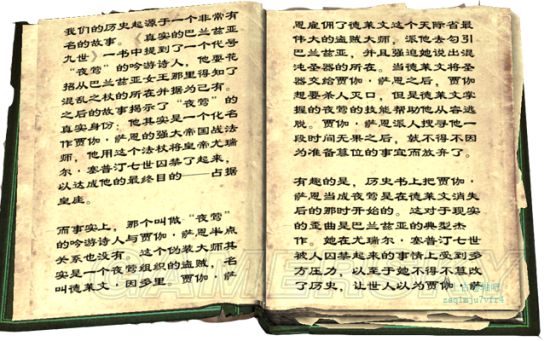 我们的历史起源于一个非常有
名的故事。《真实的巴兰兹亚
九世》一书中提到了一个代号
“夜莺”的吟游诗人，他耍花
招从巴兰兹亚女王那里得知了
混乱之杖的所在并据为己有。
之后的故事揭示了“夜莺”的
真实身份：他其实是一个化名
作贾伽·萨恩的强大帝国战法
师，他用这个法杖将皇帝尤瑞
尔·塞普汀七世囚禁了起来，
以达成他的最终目的——占据
皇座。
而事实上，那个叫做“夜莺”
的吟游诗人与贾伽·萨恩半点
关系也没有。这个伪装大师其
实是一个夜莺组织的盗贼，名
叫德莱文·因多里。贾伽·萨
恩雇佣了德莱文这个天际省最
伟大的盗贼大师，派他去勾引
巴兰兹亚，并且强迫她说出混
沌圣器的所在。当德莱文将圣
器交给贾伽·萨恩之后，贾伽
想要杀人灭口，但是德莱文掌
握的夜莺的技能帮助他从容逃
脱。贾伽·萨恩派人搜寻他一
段时间无果之后，就不得不因
为准备篡位的事宜而放弃了。
有趣的是，历史书上把贾伽·
萨恩当成夜莺是在德莱文消失
后的那时开始的。这对于现实
的歪曲是巴兰兹亚的典型杰
作。她在尤瑞尔·塞普汀七世
被人囚禁起来的事情上受到多
方压力，以至于她不得不篡改
了历史，让世人以为贾伽·萨
GAMERSKY